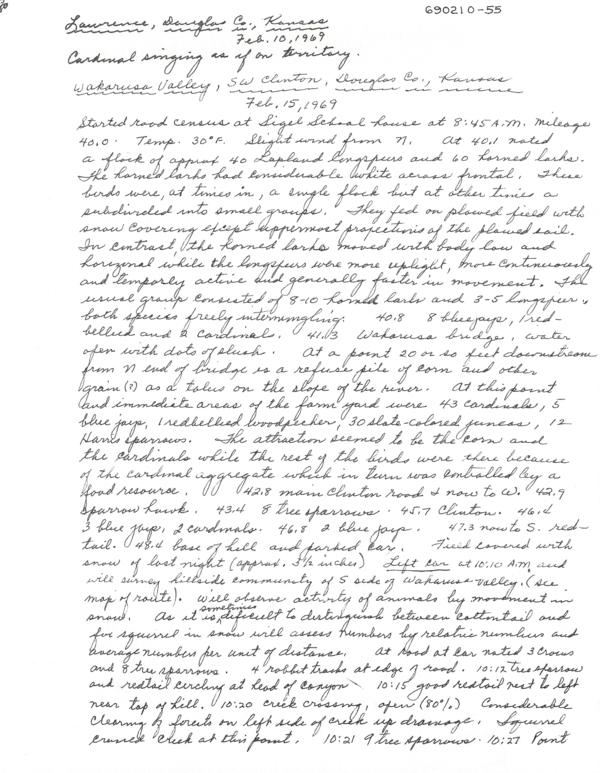 690210-55
Lawrence, Douglas Co., Kansas
Feb. 10, 1969
Cardinal singing as if on territory.
Wakarusa Valley, SW Clinton, Douglas Co., Kansas
Feb. 15, 1969
Started road census at Sigel School house at 8:45 A.M. Mileage
40.0. Temp. 30°F. Slight wind from N. At 40.1 noted
a flock of approx 40 Lapland longspurs and 60 horned larks.
The horned larks had considerable white across frontal. These
birds were, at times in, a single flock but at other times a
subdivided into small groups. They fed on plowed field with
snow covering except uppermost projections of the plowed soil.
In contrast, the horned larks moved with body low and
horizonal while the longspurs were more uplight, more continuously
and temporly active and generally faster in movement. The
usual group consisted of 8-10 horned larks and 3-5 longspurs,
both species freely intermingling. 40.8 8 bluejays, 1 red-
bellied and 2 cardinals. 41.3 Wakarusa bridge, water
open with dots of slush. At a point 20 or so feet downstream
from N end of bridge is a refuse pile of corn and other
grain (?) as a talus on the slope of the river. At this point
and immediate areas of the farm yard were 43 cardinals, 5
blue jays, 1 redbellied woodpecker, 30 slate-colored juncos, 12
Harris sparrows. The attraction seemed to be the corn and
the cardinals while the rest of the birds were there because
of the cardinal aggregate which in turn was controlled by a
food resource. 42.8 main Clinton road & now to W. 42.9
sparrow hawk. 43.4 8 tree sparrows. 45.7 Clinton. 46.4
3 blue jays, 2 cardinals. 46.8 2 blue jays. 47.3 now to S. red-
tail. 48.4 base of hill and parked car. Field covered with
snow of last night (approx. 3½ inches) Left car at 10:10 A.M. and
will survey hillside community of S side of Wakarusa Valley. (see
map of route). Will observe activity of animals by movement in
snow. As it is sometimes difficult to distinguish between cottontail and
fox squirrel in snow will assess numbers by relative numbers and
average numbers per unit of distance. At road at car noted 3 crows
and 8 tree sparrows. 4 rabbit tracks at edge of road. 10:12 tree sparrow
and redtail circling at head of canyon 10:15 good redtail nest to left
near top of hill. 10:20 creek crossing, open (80%) Considerable
clearing of forests on left side of creek up drainage. Squirrel
crossed creek at this point. 10:21 9 tree sparrows. 10:27 Point